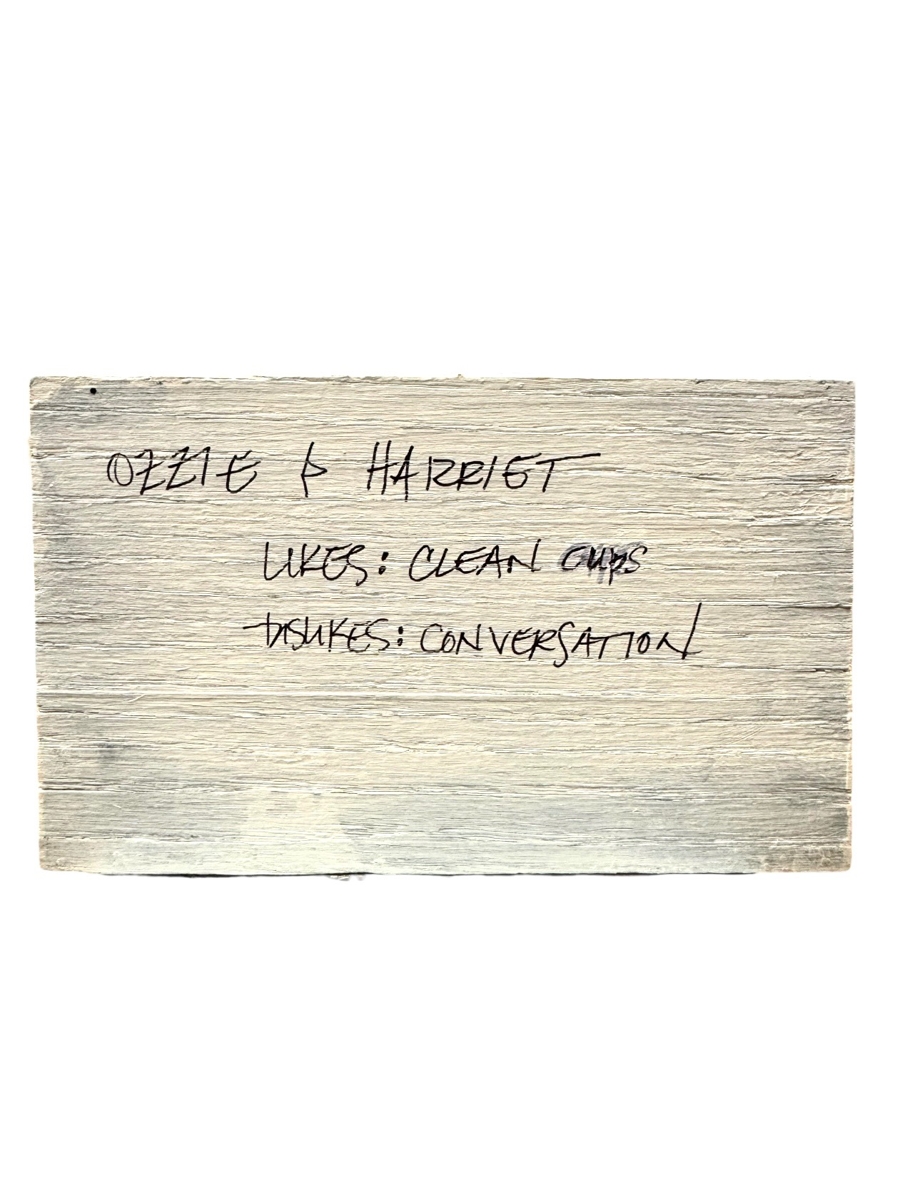 OZZIE & HARRIET
LIKES: CLEAN CUPS
DISLIKES: CONVERSATION